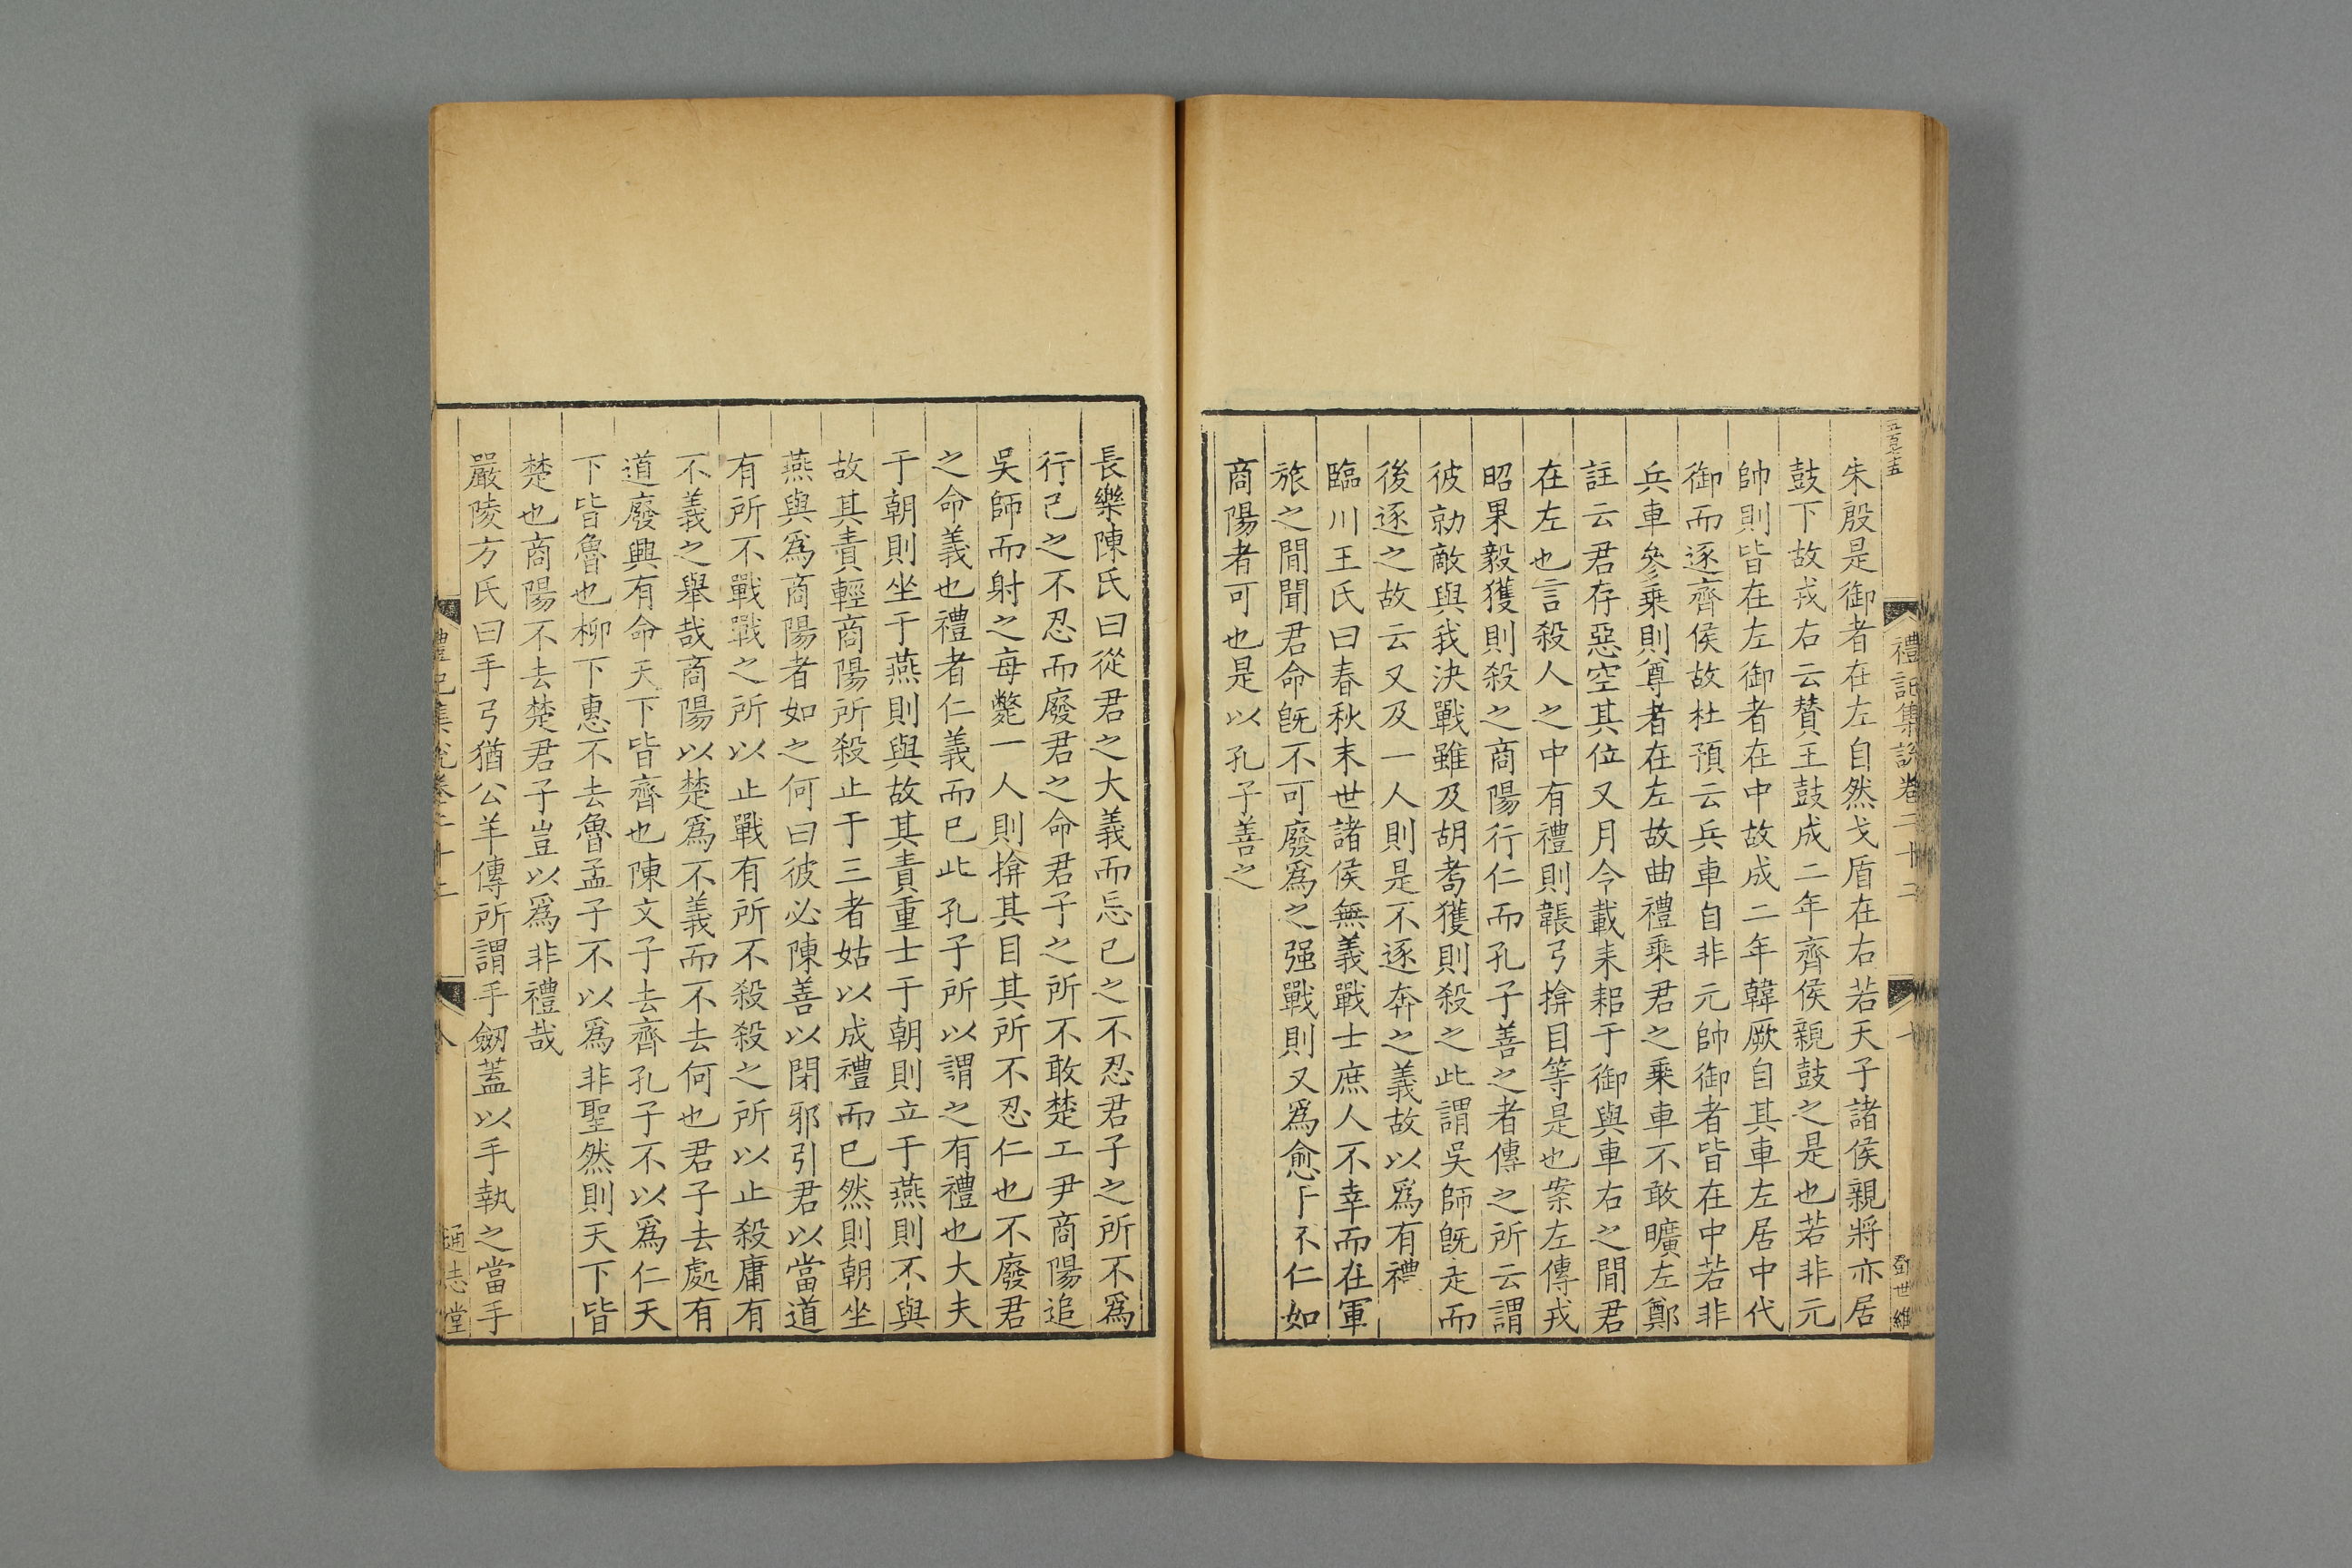 五百七十五
禮記集說卷二十二
十
鄧世維
朱殷是御者在左自然戈盾在右若天子諸侯親將亦居
鼓下故戎右云贊王鼓成二年齊侯親鼓之是也若非元
帥則皆在左御者在中故成二年韓厥自其車左居中代
御而逐齊侯故杜預云兵車自非元帥御者皆在中若非
兵車參乘則尊者在左故曲禮乘君之乘車不敢曠左鄭
註云君存惡空其位又月令載耒耜于御與車右之閒君
在左也言殺人之中有禮則韔弓揜目等是也案左傳戎
昭果毅獲則殺之商陽行仁而孔子善之者傳之所云謂
彼勍敵與我決戰雖及胡耈獲則殺之此謂吳師旣走而
後逐之故云又及一人則是不逐奔之義故以爲有禮
臨川王氏曰春秋末世諸侯無義戰士庶人不幸而在軍
旅之閒聞君命旣不可廢爲之强戰則又爲愈于不仁如
商陽者可也是以孔子善之
長樂陳氏曰從君之大義而忘己之不忍君子之所不爲
行己之不忍而廢君之命君子之所不敢楚工尹商陽追
吳師而射之每斃一人則揜其目其所不忍仁也不廢君
之命義也禮者仁義而已此孔子所以謂之有禮也大夫
于朝則坐于燕則與故其責重士于朝則立于燕則不與
故其責輕商陽所殺止于三者姑以成禮而已然則朝坐
燕與爲商陽者如之何曰彼必陳善以閉邪引君以當道
有所不戰戰之所以止戰有所不殺殺之所以止殺庸有
不義之舉哉商陽以楚爲不義而不去何也君子去處有
道廢興有命天下皆齊也陳文子去齊孔子不以爲仁天
下皆魯也柳下惠不去魯孟子不以爲非聖然則天下皆
楚也商陽不去楚君子豈以爲非禮哉
嚴陵方氏曰手弓猶公羊傳所謂手劒蓋以手執之當手
禮記集說卷二十二
八
通志堂